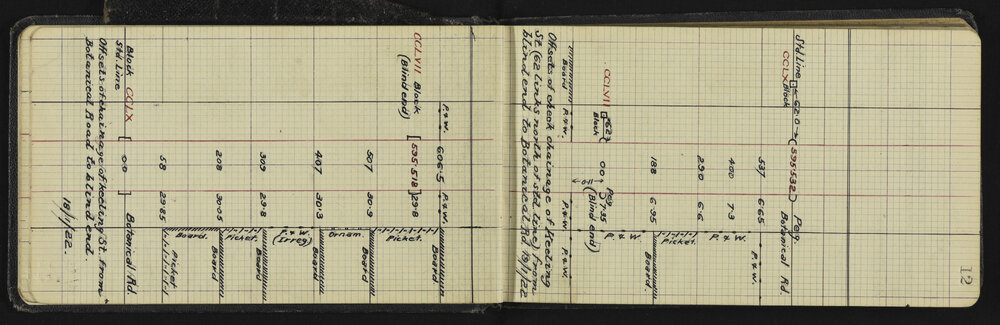 12
Std. Line 620 (595.532) Peg.
CCLX Block Botanical Rd.
537 6.65 P. & W.
400 7.3 P. & W.
290 6.6
Picket.
188 6.95 Board
P. & W.
CCLVII 62 00 7.35 Peg
Block (Blind end)
0.11
Board P. & W. P. & W. P. & W.
Offsets of check chainage of Keeling
St. (62 links north of std. line) from
blind end to Botanical Rd. 19/1/22
P. & W. 606.5 P. & W.
CCLVII Block [595.518] 29.8
(Blind end)
Picket.
507 30.9 Board
Ornam.
407 30.3 Board
P. & W.
(Irreg)
309 29.8 Board
Picket.
208 30.05 Board
Board.
58 29.85 Picket
Block CCLX [00] Botanical Rd.
Std. Line
Offsets of chainage of Keeling St. from
Botanical Road to blind end.
18/1/22.